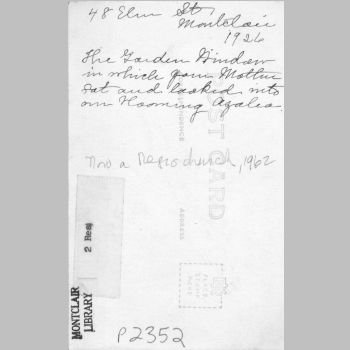 48 Elm St
Montclair
1926
The Garden Window
in which your Mother
sat and looked into
our blooming Azalea
Now a Negro church, 1962
POST CARD
CORRESPONDENCE
ADDRESS
PLACE
STAMP
HERE
2 Res
MONTCLAIR
LIBRARY
P2352